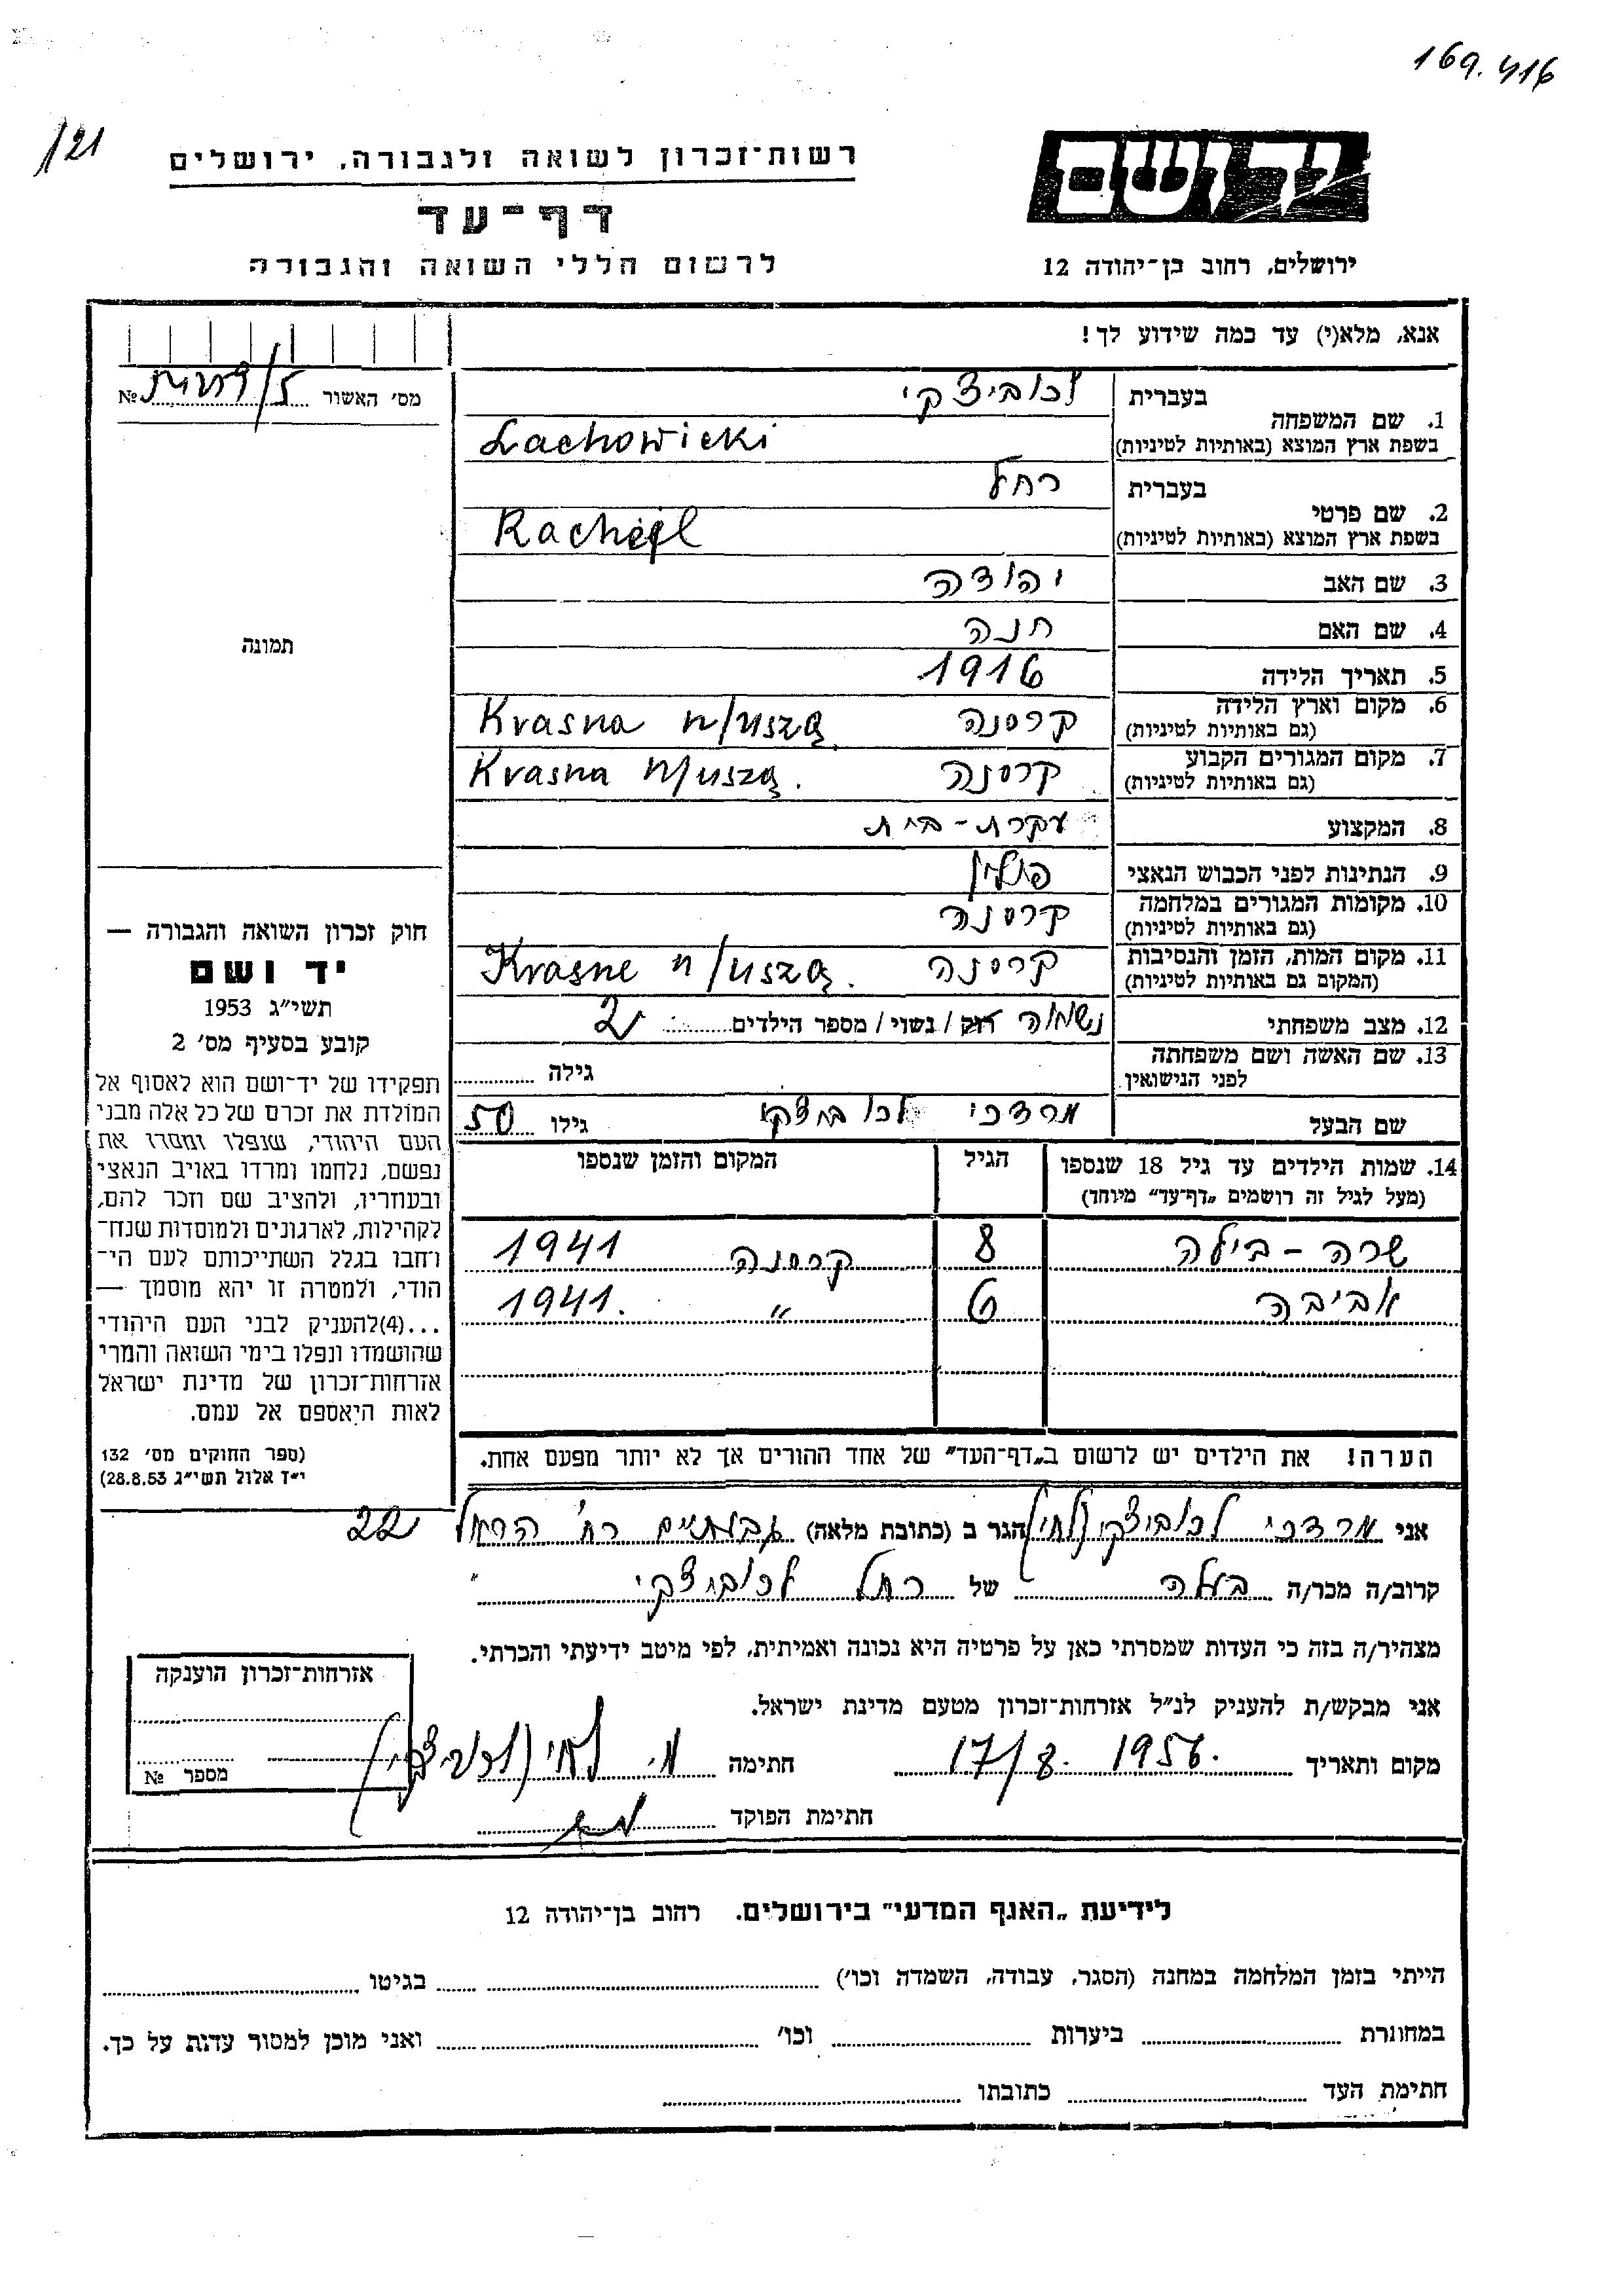 169.416
121
רשות־זכרון לשואה ולגבורה, ירושלים
יד ושם
דף־עד
לרשום חללי השואה והגבורה
ירושלים, רחוב בן־יהודה 12
אנא, מלא(י) עד כמה שידוע לך!
מס׳ האשור № 
1. שם המשפחה
בעברית לכוביצקי
בשפת ארץ המוצא (באותיות לטיניות) Lachowicki
2. שם פרטי
בעברית רחל
בשפת ארץ המוצא (באותיות לטיניות) Rachel
3. שם האב יהודה
4. שם האם חנה
5. תאריך הלידה 1916
6. מקום וארץ הלידה (גם באותיות לטיניות) קרסנה Krasna n/uszą
7. מקום המגורים הקבוע (גם באותיות לטיניות) קרסנה Krasna n/uszą.
8. המקצוע עקרת-בית
9. הנתינות לפני הכבוש הנאצי פולין
10. מקומות המגורים במלחמה (גם באותיות לטיניות) קרסנה
11. מקום המות, הזמן והנסיבות (המקום גם באותיות לטיניות) קרסנה Krasne n/uszą.
12. מצב משפחתי נשואה רוק / נשוי / מספר הילדים 2
13. שם האשה ושם משפחתה לפני הנישואין גילה
שם הבעל מרדכי לכוביצקי גילו 50
14. שמות הילדים עד גיל 18 שנספו הגיל המקום והזמן שנספו
(מעל לגיל זה רושמים „דף־עד״ מיוחד)
שרה - ביילה 8 קרסנה 1941
אביבה 6 " 1941.
הערה! את הילדים יש לרשום ב„דף־העד״ של אחד ההורים אך לא יותר מפעם אחת.
תמונה
חוק זכרון השואה והגבורה —
יד ושם
תשי״ג 1953
קובע בסעיף מס׳ 2
תפקידו של יד־ושם הוא לאסוף אל
המולדת את זכרם של כל אלה מבני
העם היהודי, שנפלו ומסרו את
נפשם, נלחמו ומרדו באויב הנאצי
ובעוזריו, ולהציב שם וזכר להם,
לקהילות, לארגונים ולמוסדות שנח־
רבו בגלל השתייכותם לעם הי־
הודי, ולמטרה זו יהא מוסמך —
...(4)להעניק לבני העם היהודי
שהושמדו ונפלו בימי השואה והמרי
אזרחות־זכרון של מדינת ישראל
לאות היאספם אל עמם.
(ספר החוקים מס׳ 132
י״ז אלול תשי״ג 28.8.53)
אני מרדכי לכוביצקי (לחי) הגר ב (כתובת מלאה) גבעתיים רח׳ 22
קרוב/ה מכר/ה בעלה של רחל לכוביצקי
מצהיר/ה בזה כי העדות שמסרתי כאן על פרטיה היא נכונה ואמיתית, לפי מיטב ידיעתי והכרתי.
אני מבקש/ת להעניק לנ״ל אזרחות־זכרון מטעם מדינת ישראל.
מקום ותאריך 17/8. 1956. חתימה מ. לחי (לכוביצקי)
חתימת הפוקד
אזרחות־זכרון הוענקה
מספר №
לידיעת „האגף המדעי״ בירושלים. רחוב בן־יהודה 12
הייתי בזמן המלחמה במחנה (הסגר, עבודה, השמדה וכו׳) בגיטו
במחתרת ביערות וכו׳ ואני מוכן למסור עדות על כך.
חתימת העד כתובתו